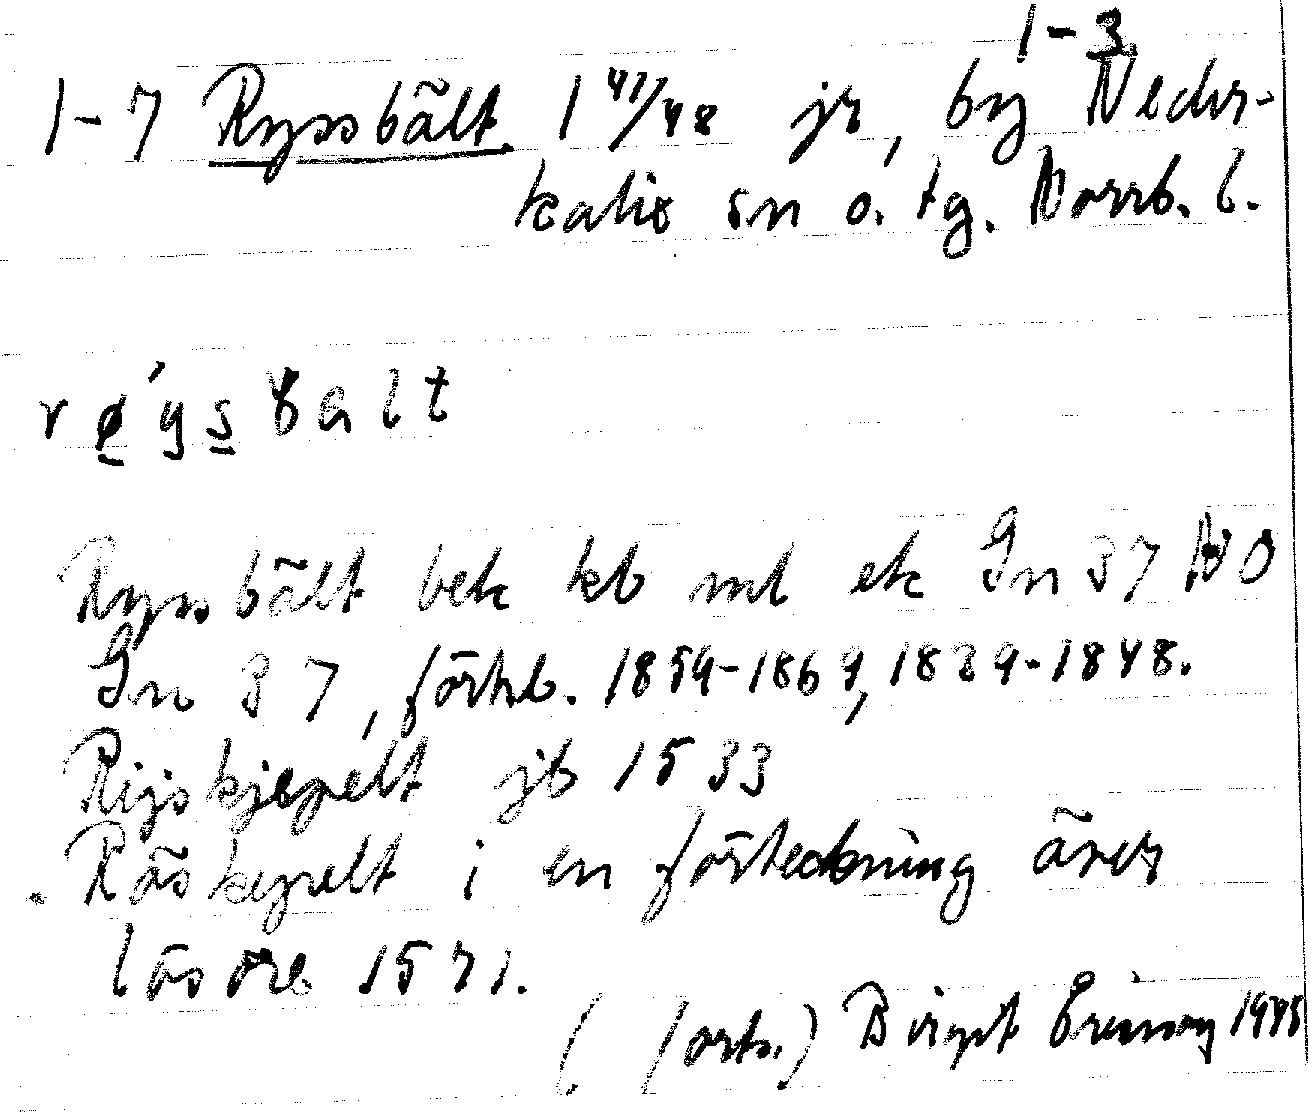 1-3
1-7 Ryssbält. 1 41/48 jr, by Neder-
kalix sn o. tg. Norrb. l.
rø'ysbalt
Ryssbält bek kb ml ek Gn 37 NO
Gn 37, förhb. 1859-1869, 1839-1848.
Rijskjepelt jb 1533
Röskepelt i en förteckning över
lösöre 1571.
(forts.) Birgit Ericsson 1975